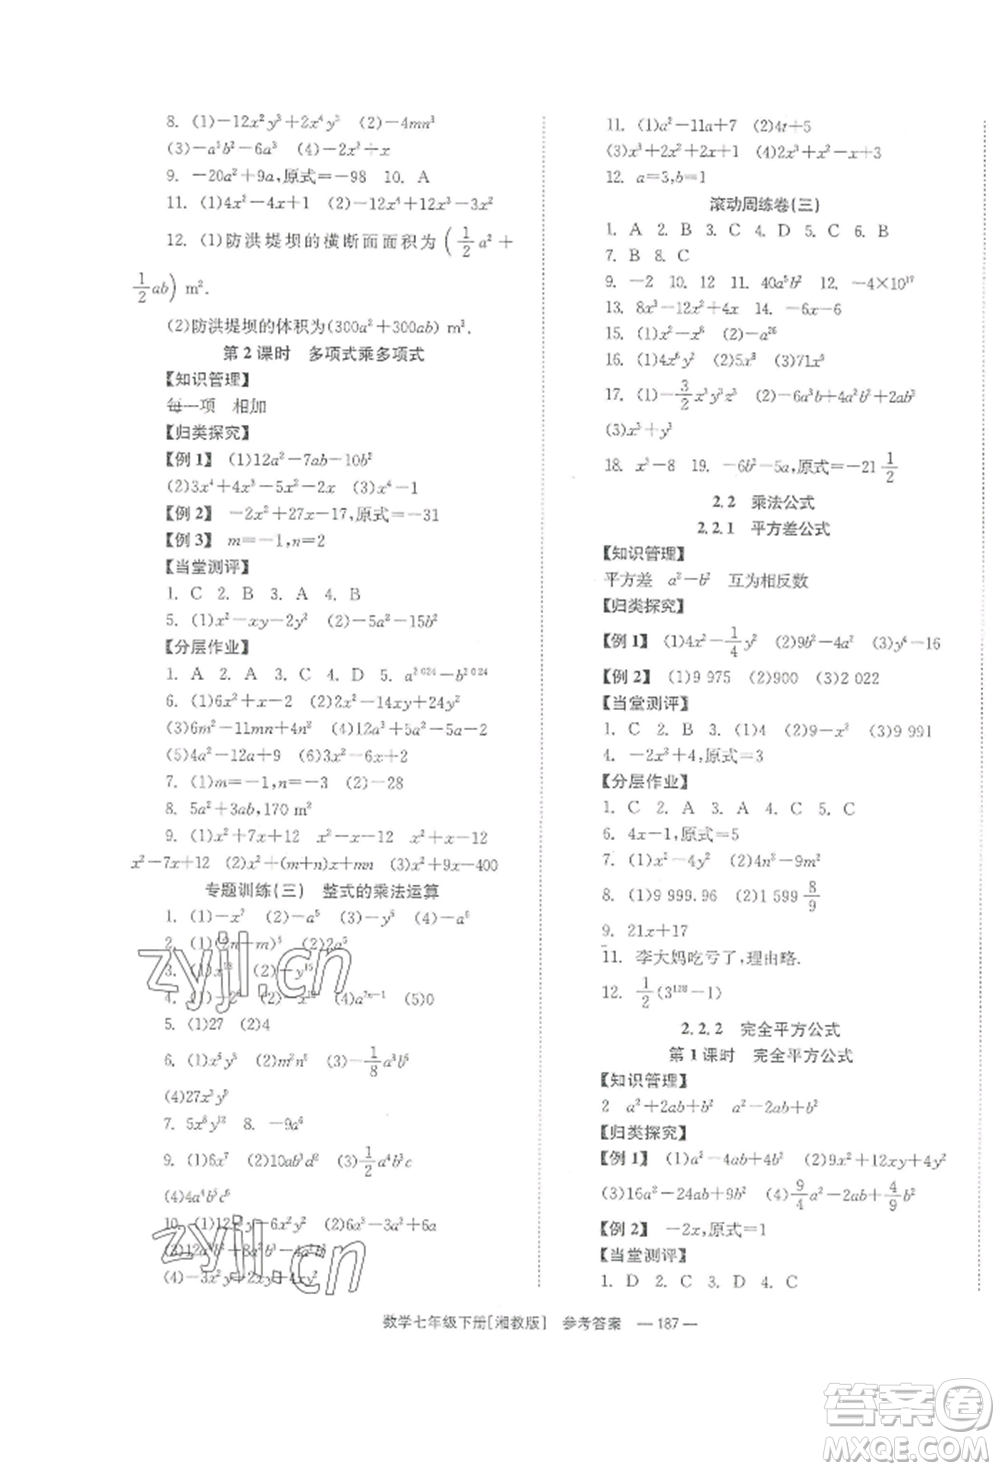 8. (1)-12x²y³+2x⁴y² (2)-4mn³
(3)-a⁵b²-6a³ (4)-2x³+x
9. -20a²+9a,原式=-98 10. A
11. (1)4x²-1 (2)-16x⁴-12x³-3x²
12. (1)防洪堤坝的横断面面积为(1/2 a²+
1/2 ab) m².
(2)防洪堤坝的体积为(300a²+300ab) m³.
第2课时 多项式乘多项式
【知识管理】
每一项 相加
【归类探究】
【例1】 (1)12a²-7ab-10b²
(2)3x⁴+4x³-5x²-2x (3)6x³-1
【例2】 -2x²+27x-17,原式=-31
【例3】 m=-1,n=2
【当堂测评】
1. C 2. B 3. A 4. B
5. (1)x²-xy-2y² (2)-5a²-15b²
【分层作业】
1. A 2. A 3. A 4. D 5. a²⁰²⁴-b²⁰²⁴
6. (1)6x²+x-2 (2)2x²-14xy+24y²
(3)6m²-11mn+4n² (4)5a³+5a²-5a-2
(5)4a²-12a+9 (6)3x²-6x+2
7. (1)m=-1,n=3 (2)-28
8. 5a²+3ab,170 m²
9. (1)x²+7x+12 x²-x-12 x²+x-12
x²-7x+12 (2)x²+(m+n)x+mn (3)x²+9x-400
专题训练(三) 整式的乘法运算
1. (1)-x⁷ (2)-a⁵ (3)-y⁵ (4)-a⁶
2. (1)(2n+m)⁵ (2)2a⁵
3. (1)x¹⁸ (2)-y¹⁵
5. (1)27 (2)4
(4)27x³y⁹
7. 5x⁸y¹² 8. -9a⁶
数学七年级下册[湘教版] 参考答案 —187—
11. (1)a²-11a+7 (2)4t+5
(3)x³+2x²+2x (4)2x³-2x²-x+3
12. a=3,b=1
滚动周练卷(三)
1. A 2. B 3. D 4. C 5. A 6. B
7. B 8. C
9. -2 10. 12 11. 40a⁵b² 12. -4×10¹⁷
13. 8x³-12x²+4x 14. -6x-6
15. (1)x²-x⁶ (2)-a²⁶
(3)x³+y³
18. x³-8 19. -6b²-5a,原式=-21 1/2
2.2 乘法公式
2.2.1 平方差公式
【知识管理】
平方差 a²-b² 互为相反数
【归类探究】
【例1】 (1)4x²-1/4 y² (2)9b²-4a² (3)y⁴-16
【例2】 (1)9 975 (2)900 (3)2 022
【当堂测评】
1. C 2. B 3. (1)4 (2)9-x² (3)9 991
4. -2x²+4,原式=2
【分层作业】
1. C 2. A 3. A 4. C 5. C
6. 4x-1,原式=5
8. (1)9 999.96 (2)1 599 8/9
9. 21x+17
11. 李大妈吃亏了,理由略.
12. 1/2 (3¹²⁸-1)
2.2.2 完全平方公式
第1课时 完全平方公式
【知识管理】
2 a²+2ab+b² a²-2ab+b²
【归类探究】
【例1】 (1)a²-4ab+4b² (2)9x²+12xy+4y²
(3)16a²-24ab+9b² (4)9/4 a²-2ab+4/9 b²
【例2】 -2x,原式=1
【当堂测评】
1. D 2. C 3. A 4. C
答案圈
MXQE.COM
zyjl.cn
zyjl.cn